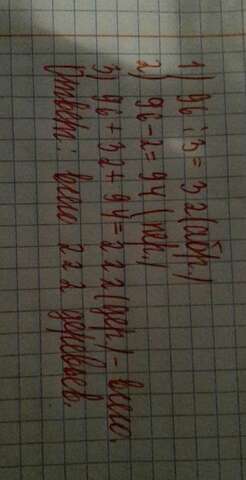 1) 96 : 3 = 32 (абр.)
2) 96 - 2 = 94 (гер.)
3) 96 + 32 + 94 = 222 (дер.) - всего.
Ответ: всего 222 деревьев.